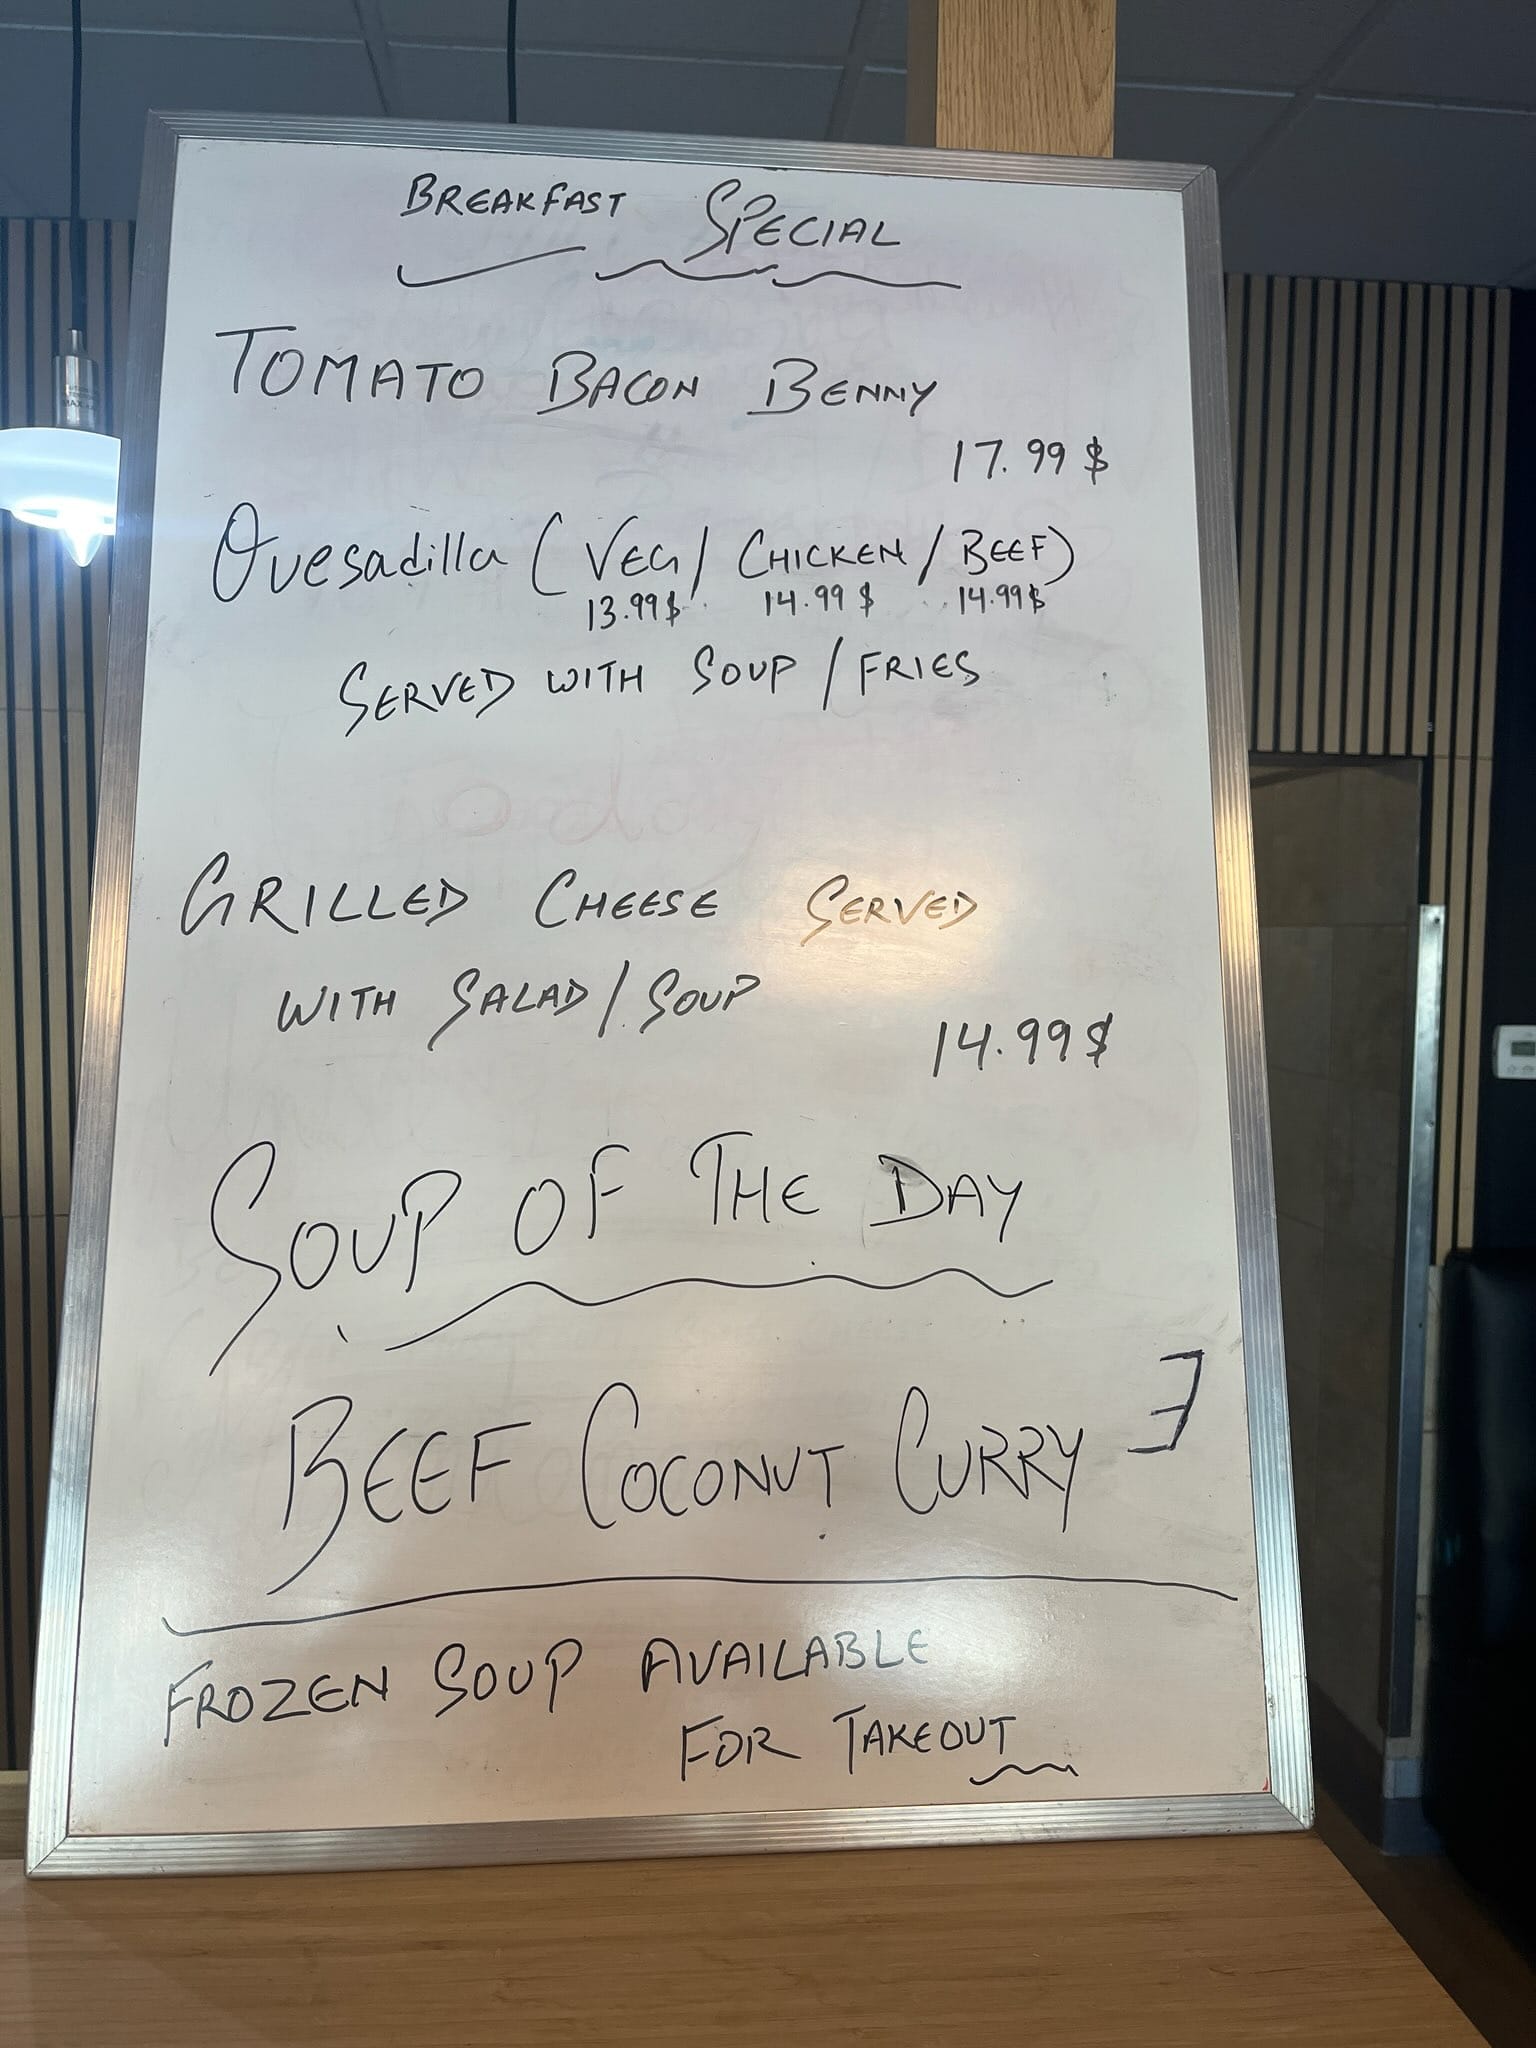 BREAKFAST SPECIAL
TOMATO BACON BENNY
17.99 $
Quesadilla ( VEG / CHICKEN / BEEF )
13.99 $ 14.99 $ 14.99 $
SERVED WITH SOUP / FRIES
GRILLED CHEESE SERVED
WITH SALAD / SOUP
14.99 $
SOUP OF THE DAY
BEEF COCONUT CURRY
FROZEN SOUP AVAILABLE
FOR TAKEOUT